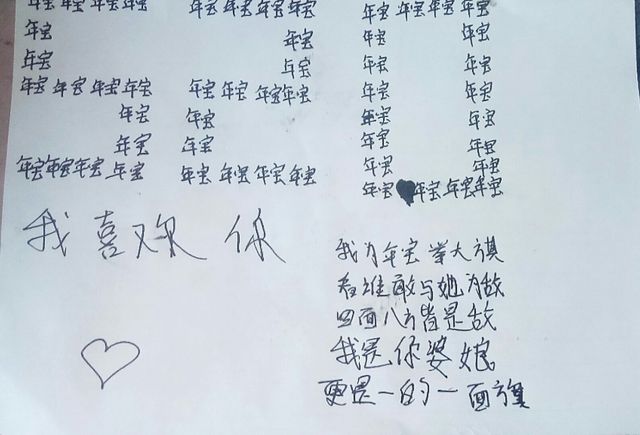 年宝 年宝 年宝 年宝 年宝 年宝 年宝 年宝 年宝 年宝 年宝 年宝
年宝 年宝 年宝 年宝
年宝 年宝 年宝 年宝
年宝 年宝 年宝 年宝 年宝 年宝 年宝 年宝 年宝 年宝
年宝 年宝 年宝 年宝
年宝 年宝 年宝 年宝
年宝 年宝 年宝 年宝 年宝 年宝 年宝 年宝 年宝 年宝
年宝 年宝 年宝 年宝
我喜欢你
我为年宝举大旗
看谁敢与她为敌
四面八方皆是敌
我是你婆娘
更是一的一面旗